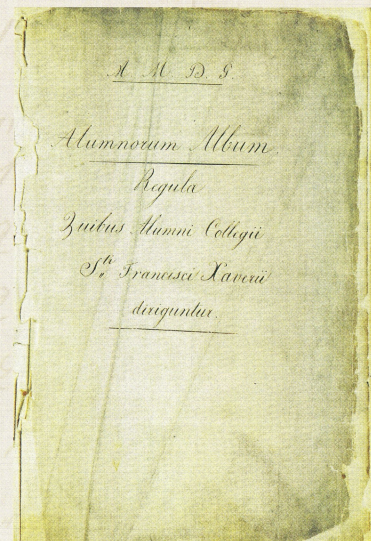 A. M. D. G.
Alumnorum Album.
Regula
Quibus Alumni Collegii
Sti. Francisci Xaverii
diriguntur.